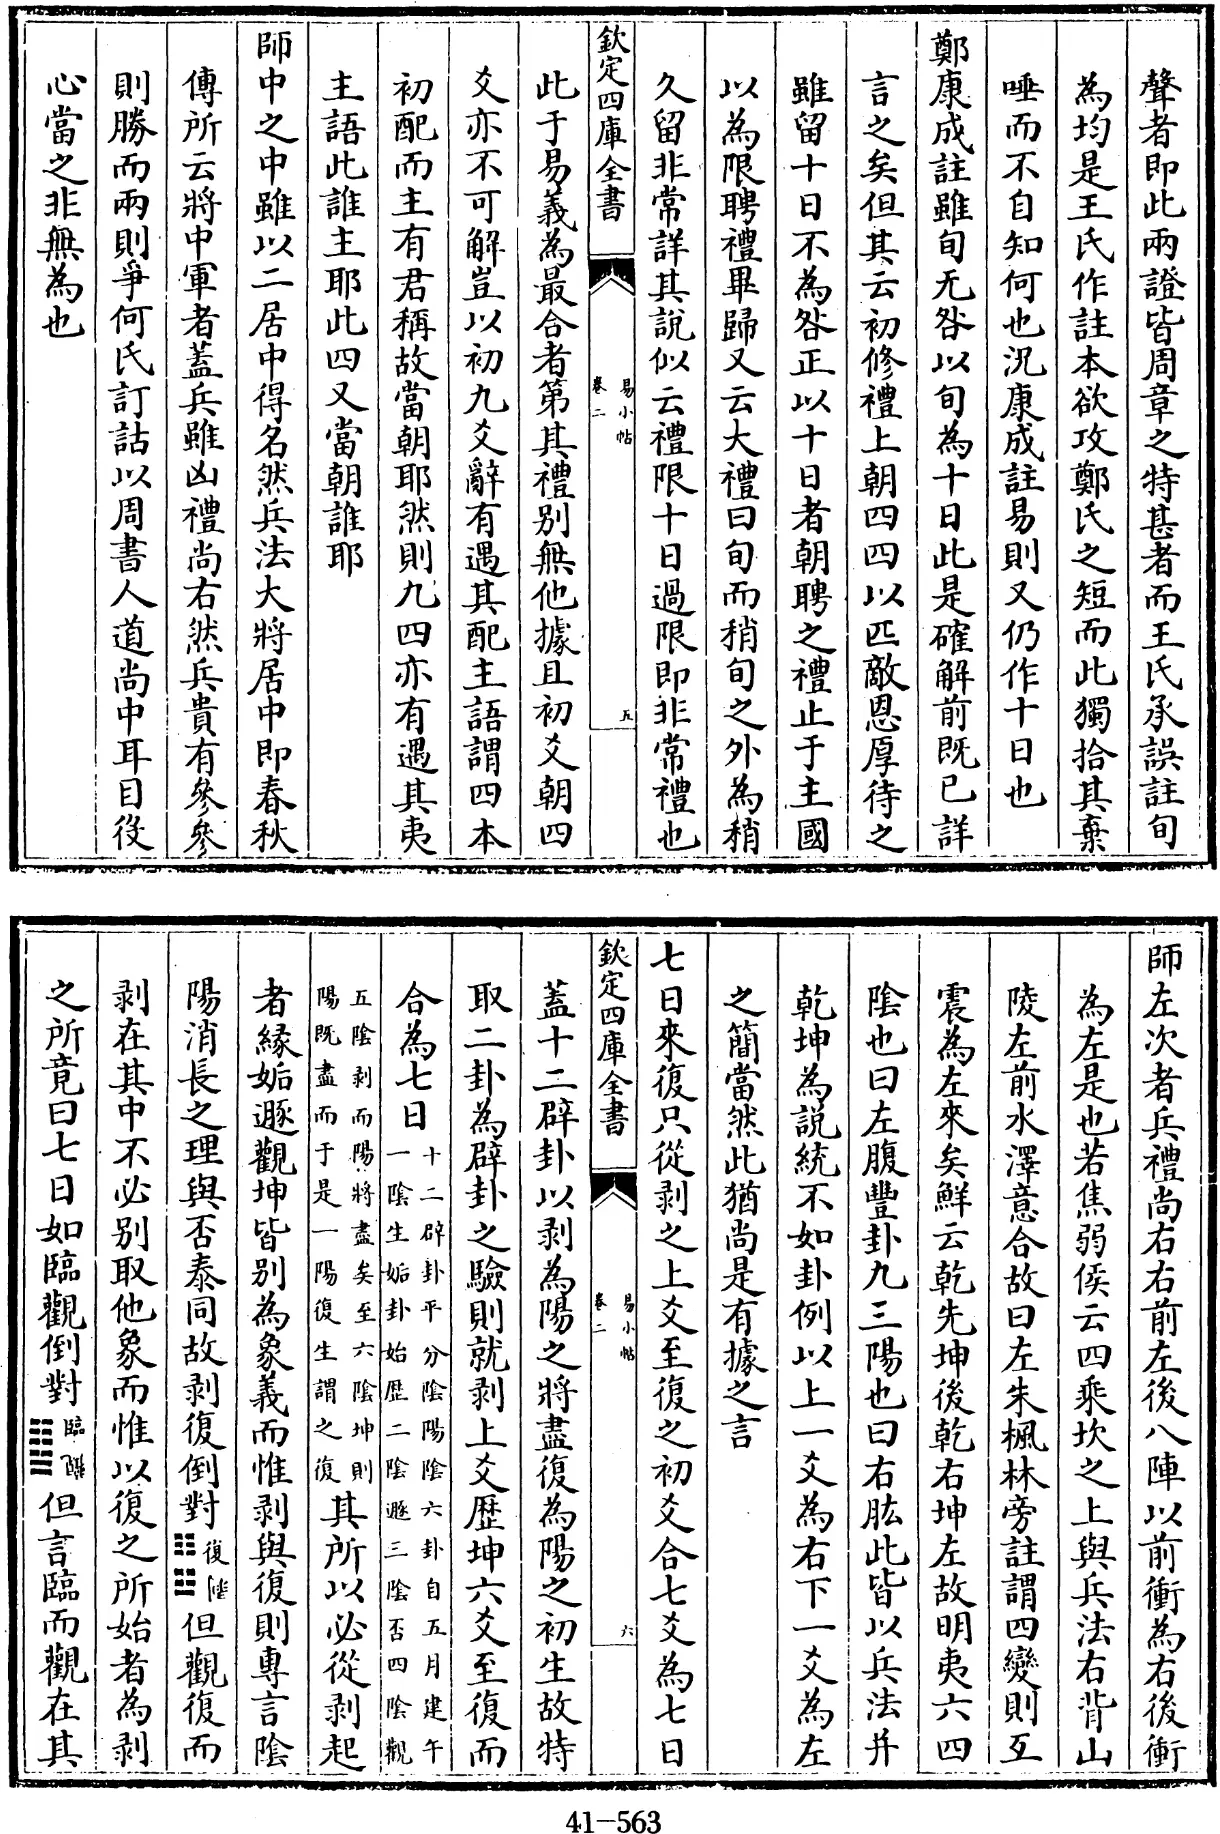 聲者即此兩證皆周章之特甚者而王氏承誤註旬
為均是王氏作註本欲攻鄭氏之短而此獨拾其棄
唾而不自知何也況康成註易則又仍作十日也
鄭康成註雖旬无咎以旬為十日此是確解前既已詳
言之矣但其云初修禮上朝四四以匹敵恩厚待之
雖留十日不為咎正以十日者朝聘之禮止于主國
以為限聘禮畢歸又云大禮曰旬而稍旬之外為稍
久留非常詳其說似云禮限十日過限即非常禮也
欽定四庫全書
易小帖
卷二
五
此于易義為最合者第其禮別無他據且初爻朝四
爻亦不可解豈以初九爻辭有遇其配主語謂四本
初配而主有君稱故當朝耶然則九四亦有遇其夷
主語此誰主耶此四又當朝誰耶
師中之中雖以二居中得名然兵法大將居中即春秋
傳所云將中軍者蓋兵雖凶禮尚右然兵貴有參參
則勝而兩則爭何氏訂詁以周書人道尚中耳目役
心當之非無為也
師左次者兵禮尚右右前左後八陣以前衝為右後衝
為左是也若焦弱侯云四乘坎之上與兵法右背山
陵左前水澤意合故曰左朱楓林旁註謂四變則互
震為左來矣鮮云乾先坤後乾右坤左故明夷六四
陰也曰左腹豐卦九三陽也曰右肱此皆以兵法并
乾坤為說統不如卦例以上一爻為右下一爻為左
之簡當然此猶尚是有據之言
七日來復只從剥之上爻至復之初爻合七爻為七日
欽定四庫全書
易小帖
卷二
六
蓋十二辟卦以剥為陽之將盡復為陽之初生故特
取二卦為辟卦之驗則就剥上爻歷坤六爻至復而
合為七日十二辟卦平分陰陽陰六卦自五月建午
一陰生姤卦始歷二陰遯三陰否四陰觀
五陰剥而陽將盡矣至六陰坤則
陽既盡而于是一陽復生謂之復其所以必從剥起
者緣姤遯觀坤皆別為象義而惟剥與復則專言陰
陽消長之理與否泰同故剥復倒對䷗䷖復但觀復而
剥在其中不必別取他象而惟以復之所始者為剥
之所竟曰七日如臨觀倒對䷒䷓臨觀但言臨而觀在其
41-563